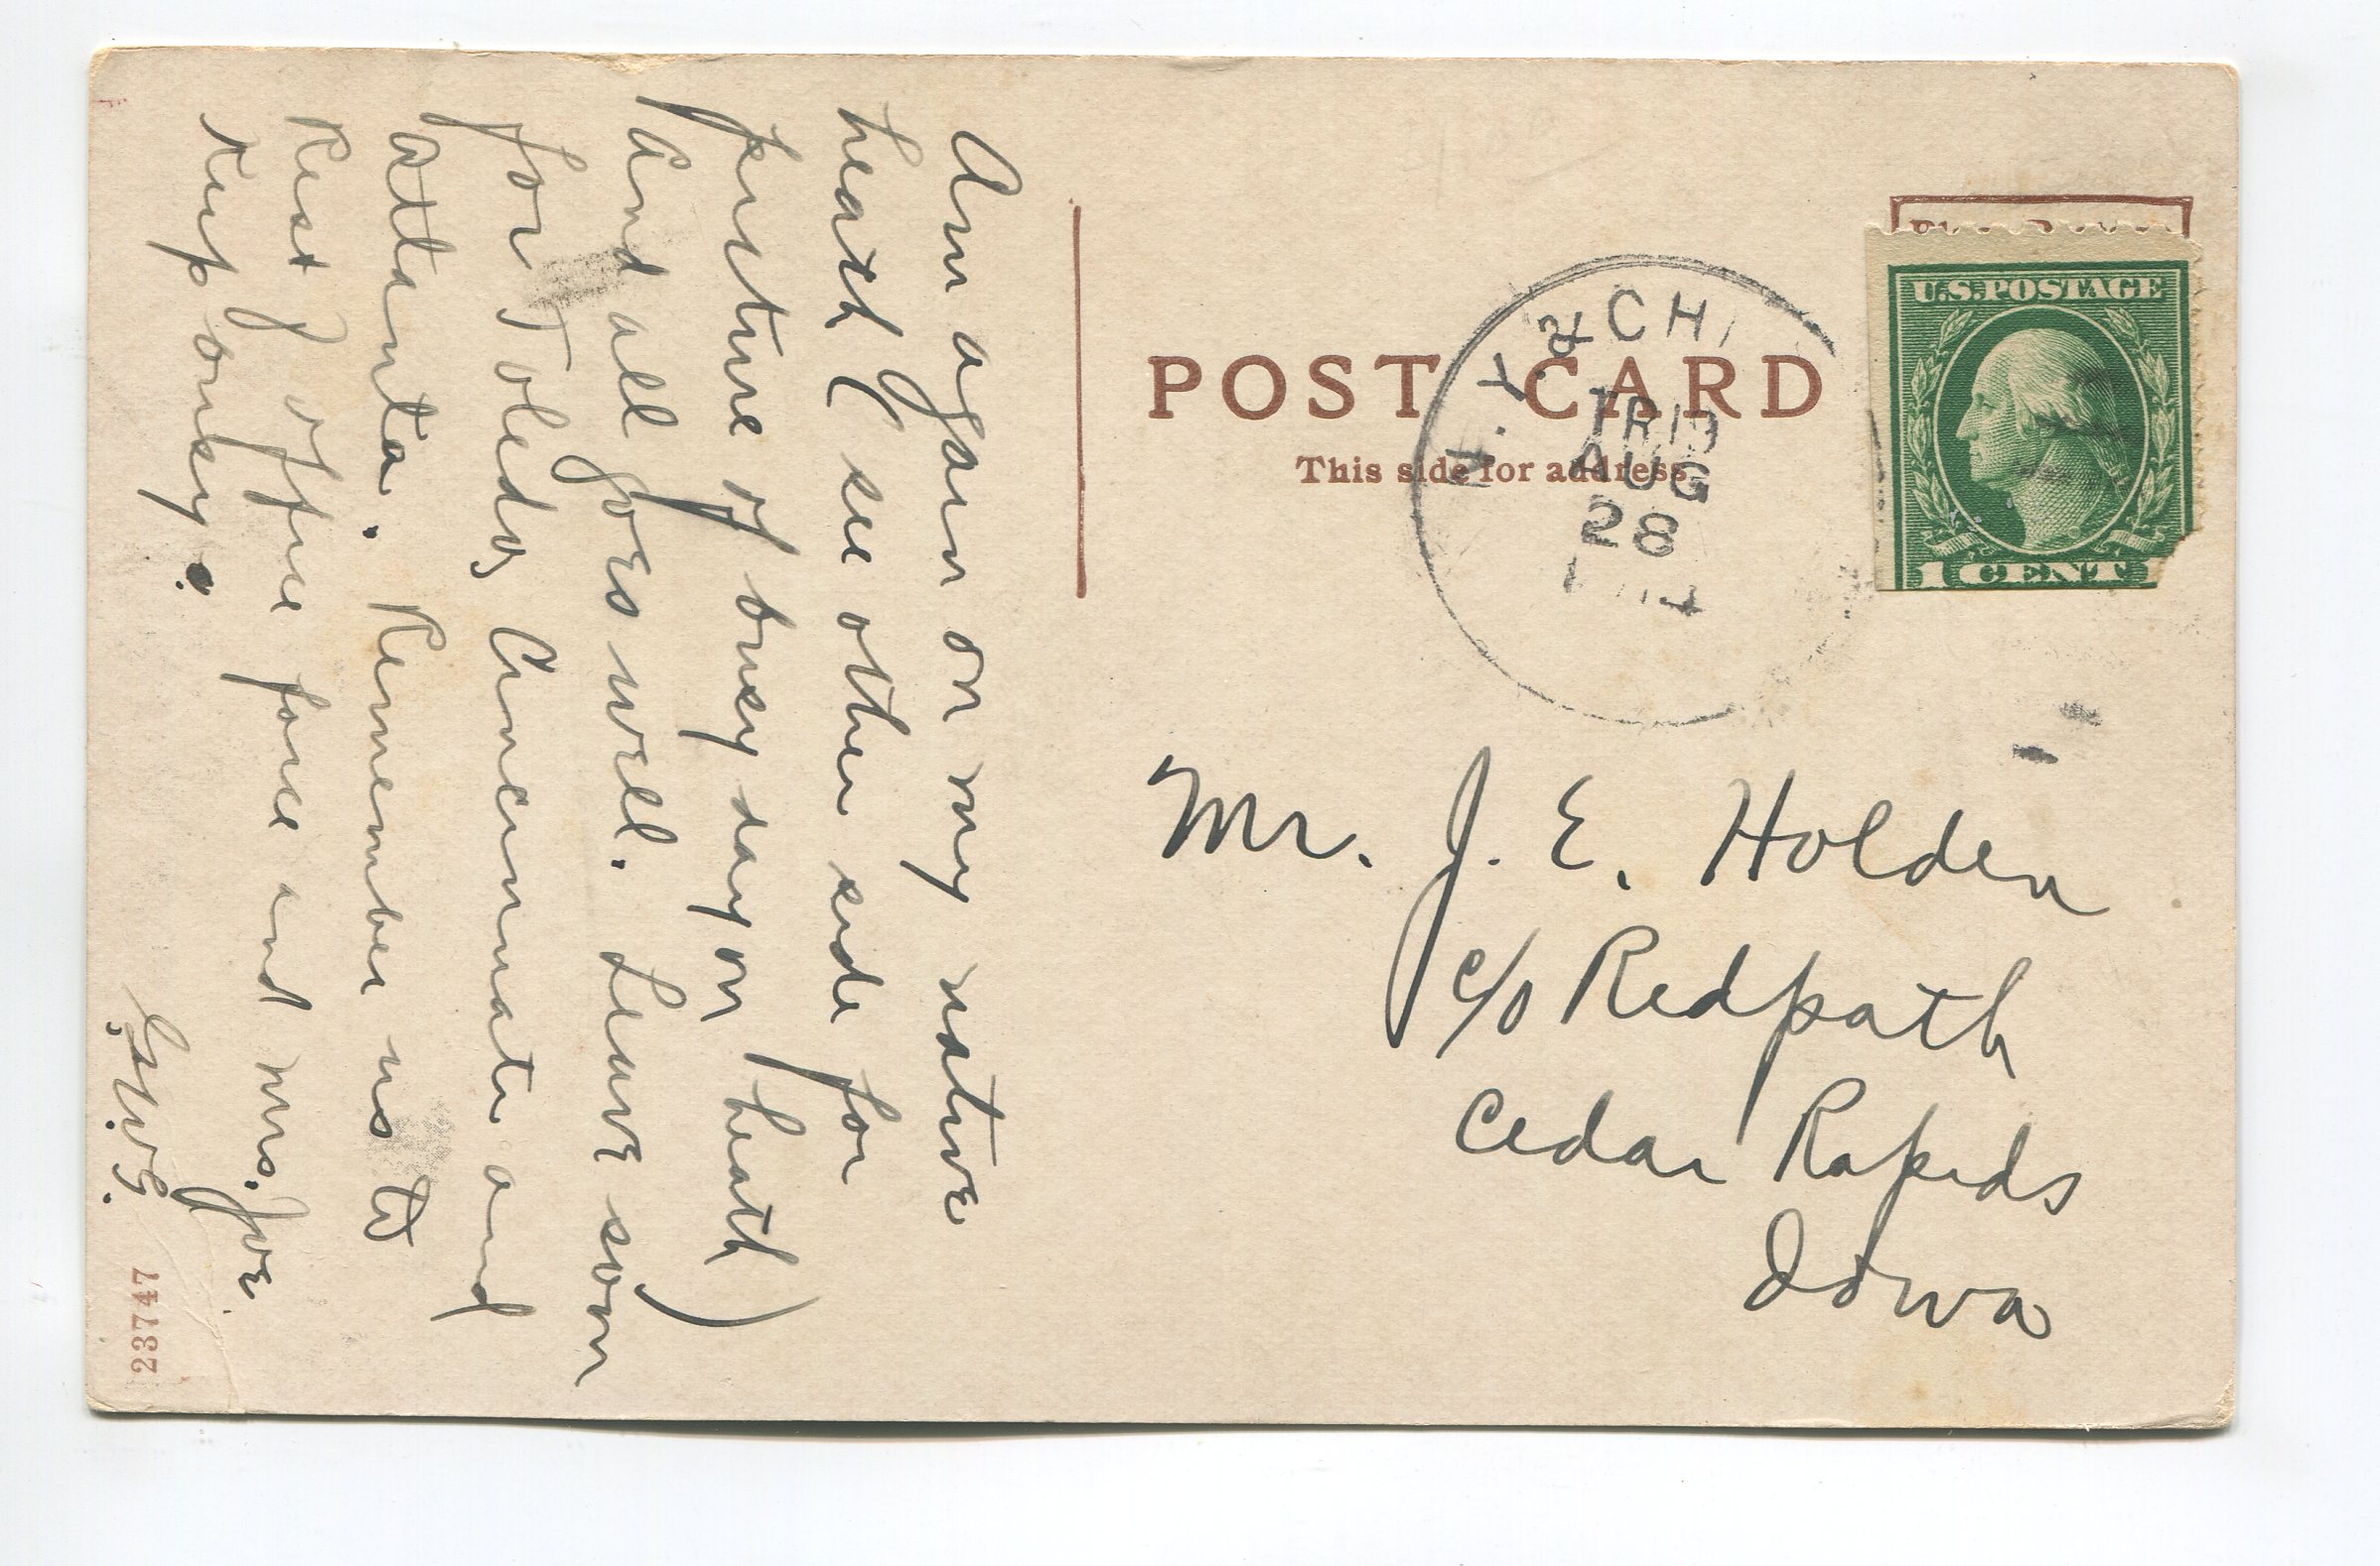 Am again on my native
heath (see other side for
picture of busy day on heath)
And all goes well. Leave soon
for Toledo, Cincinnati and
Atlanta. Remember us to
Rest of office force and Mrs. Joe
Keep onsey.
G.W.G.
237747
POST CARD
This side for address
N.Y. & CHI
TR 13
AUG
28
U.S. POSTAGE
1 CENT 1
Mr. J. E. Holden
c/o Redpath
Cedar Rapids
Iowa